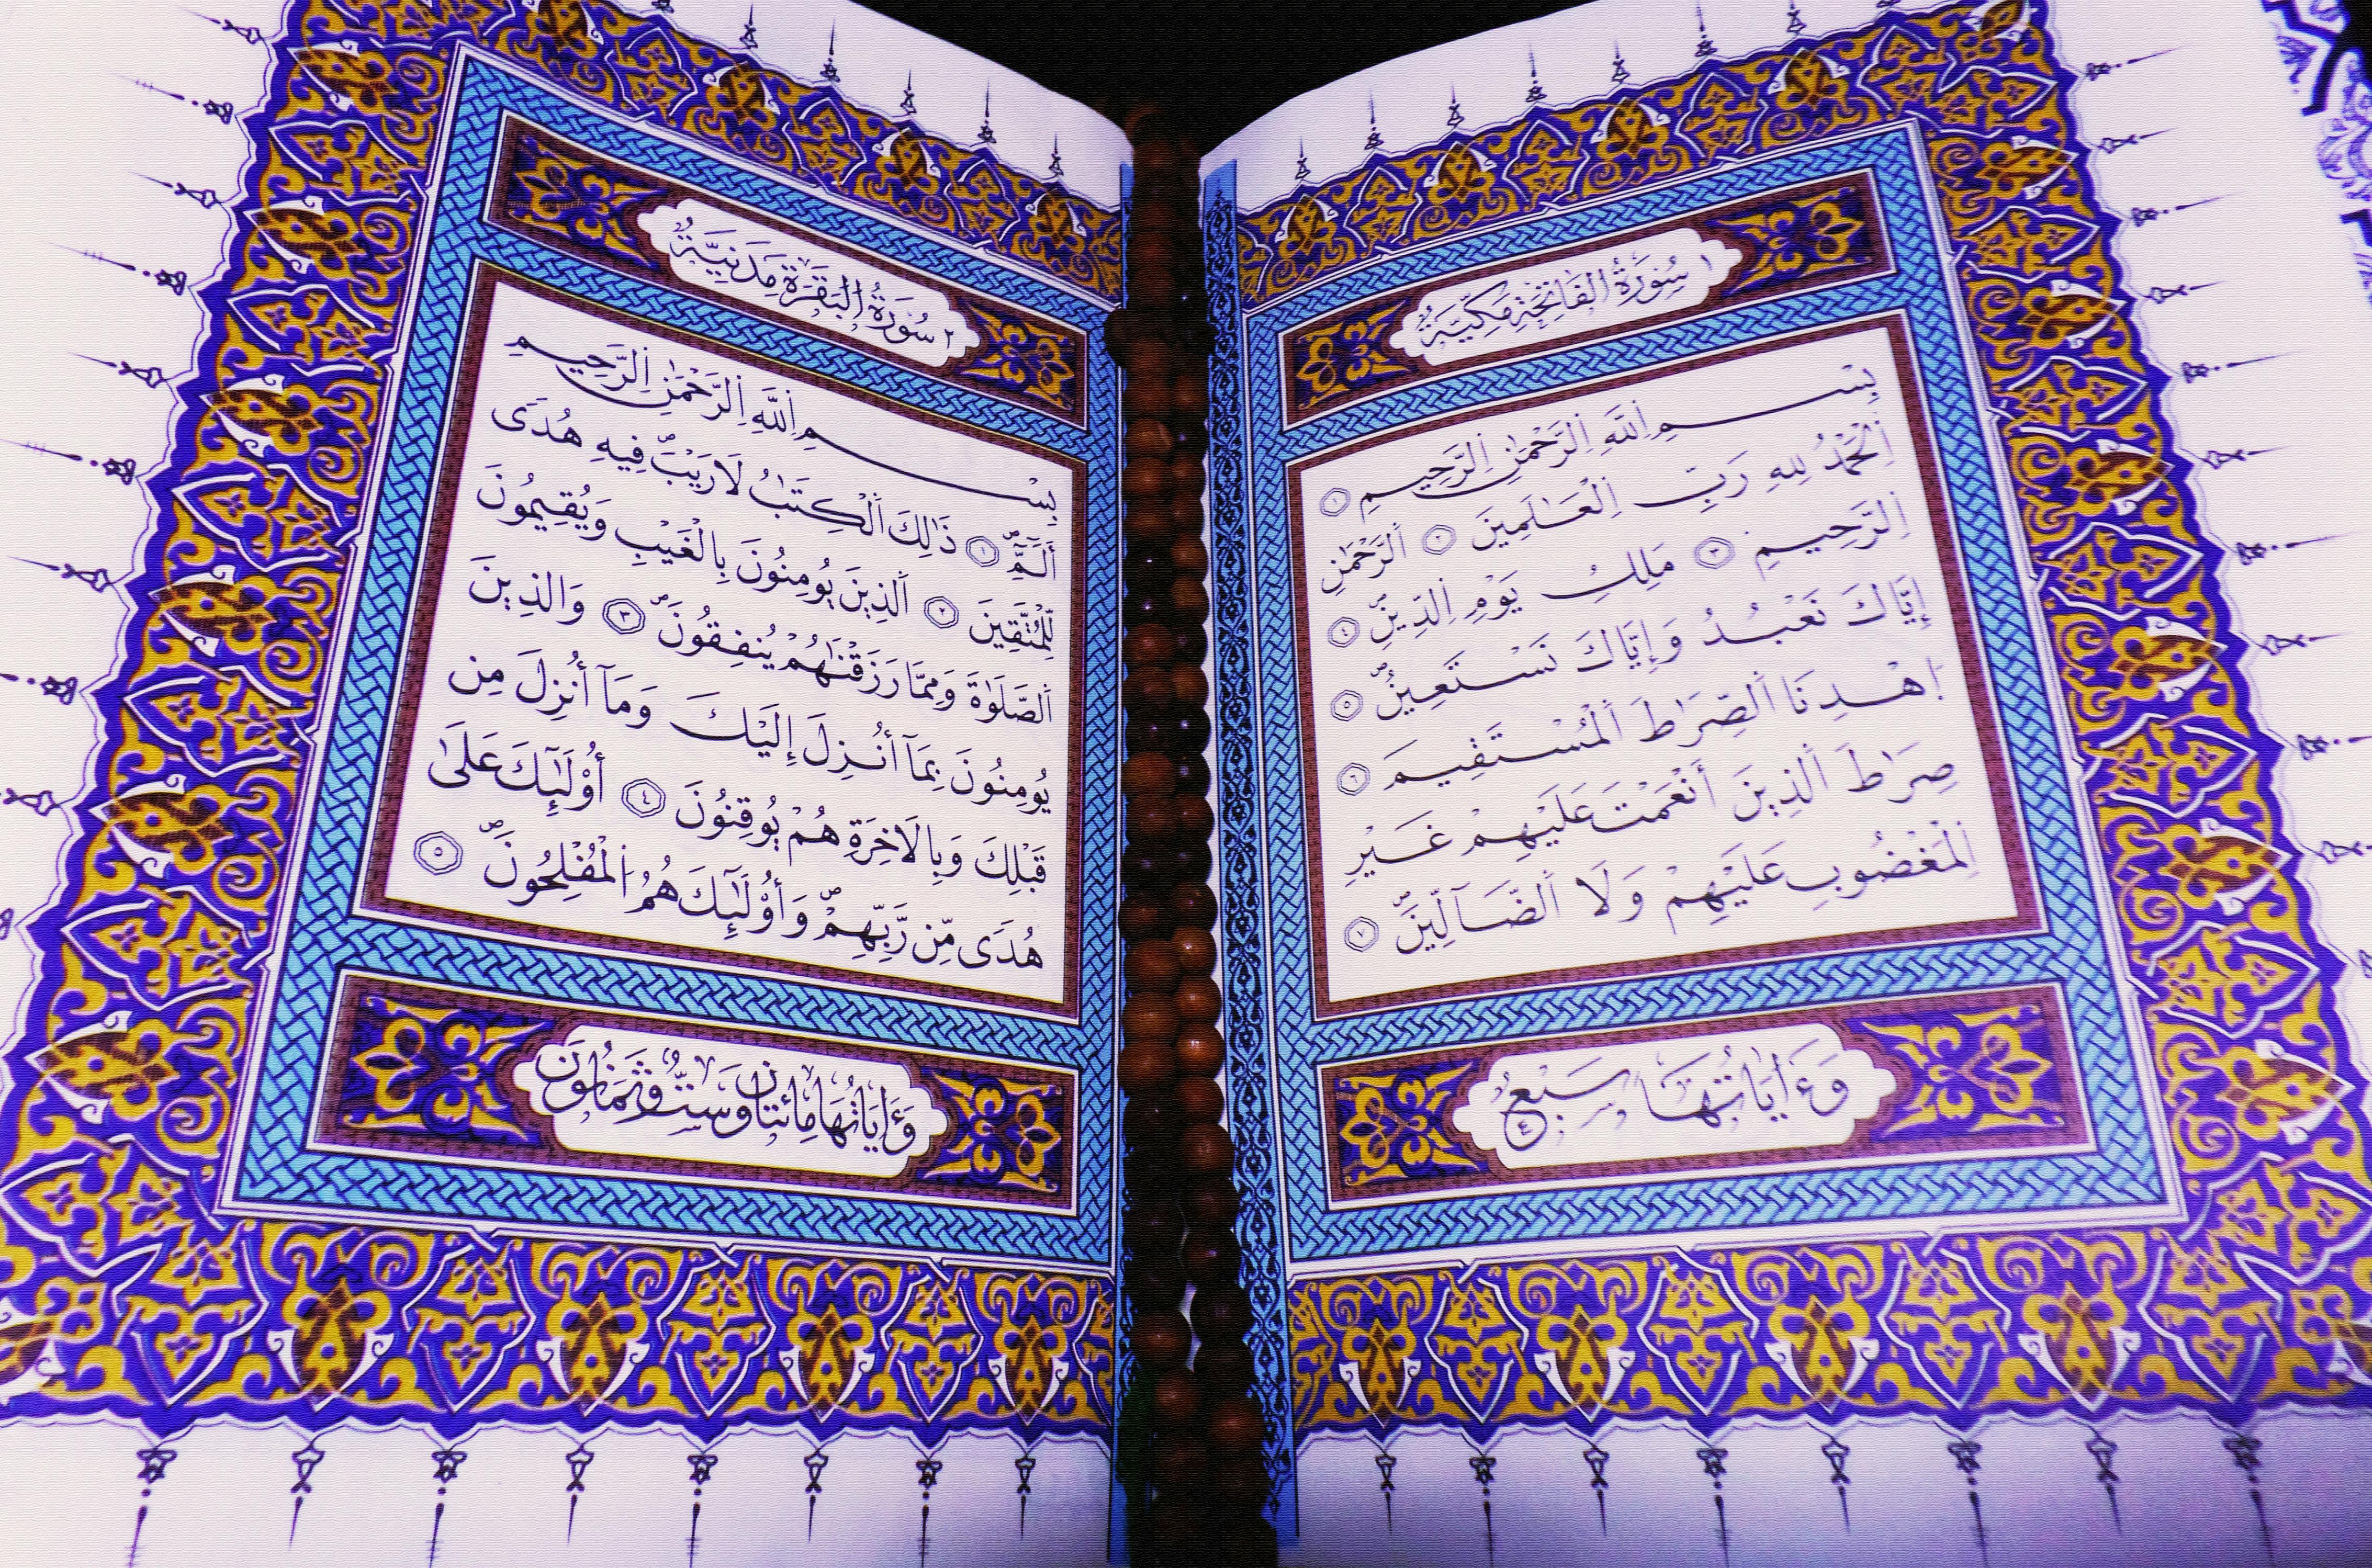 ١ سُورَةُ الفَاتِحَةِ مَكِّيَّةٌ
بِسْمِ اِللَّهِ اِلرَّحْمَٰنِ اِلرَّحِيمِ ١
اِلْحَمْدُ لِلهِ رَبِّ اِلْعَٰلَمِينَ ٢ اَلرَّحْمَٰنِ
اِلرَّحِيمِ ٣ مَلِكِ يَوْمِ اِلدِّينِۖ ٤
إِيَّاكَ نَعْبُدُ وَإِيَّاكَ نَسْتَعِينُۖ ٥
اِهْدِنَا اَلصِّرَٰطَ اَلْمُسْتَقِيمَ ٦
صِرَٰطَ اَلذِينَ أَنْعَمْتَ عَلَيْهِمْ غَيْرِ
اِلْمَغْضُوبِ عَلَيْهِمْ وَلَا اَلضَّآلِّينَۖ ٧
وَءَايَاتُهَا سَبْعٌ
٢ سُورَةُ البَقَرَةِ مَدَنِيَّةٌ
بِسْمِ اِللَّهِ اِلرَّحْمَٰنِ اِلرَّحِيمِ
أَلَٓمِّٓۖ ١ ذَٰلِكَ اَلْكِتَٰبُ لَا رَيْبَۖ فِيهِ هُدىً
لِّلْمُتَّقِينَ ٢ اَلذِينَ يُومِنُونَ بِالْغَيْبِ وَيُقِيمُونَ
اَلصَّلَوٰةَ وَمِمَّا رَزَقْنَٰهُمْ يُنفِقُونَۖ ٣ وَالذِينَ
يُومِنُونَ بِمَآ أُنزِلَ إِلَيْكَ وَمَآ أُنزِلَ مِن
قَبْلِكَ وَبِالَاخِرَةِ هُمْ يُوقِنُونَ ٤ أُوْلَٰٓئِكَ عَلَىٰ
هُدىً مِّن رَّبِّهِمْۖ وَأُوْلَٰٓئِكَ هُمُ اُلْمُفْلِحُونَۖ ٥
وَءَايَاتُهَا مِائَتَانِ وَسِتٌّ وَثَمَانُونَ